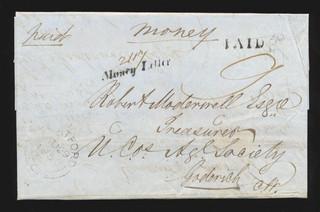 paid Money PAID
Money Letter
Robert Moderwell Esqre
Treasurer
U. Cos Agl Society
Goderich